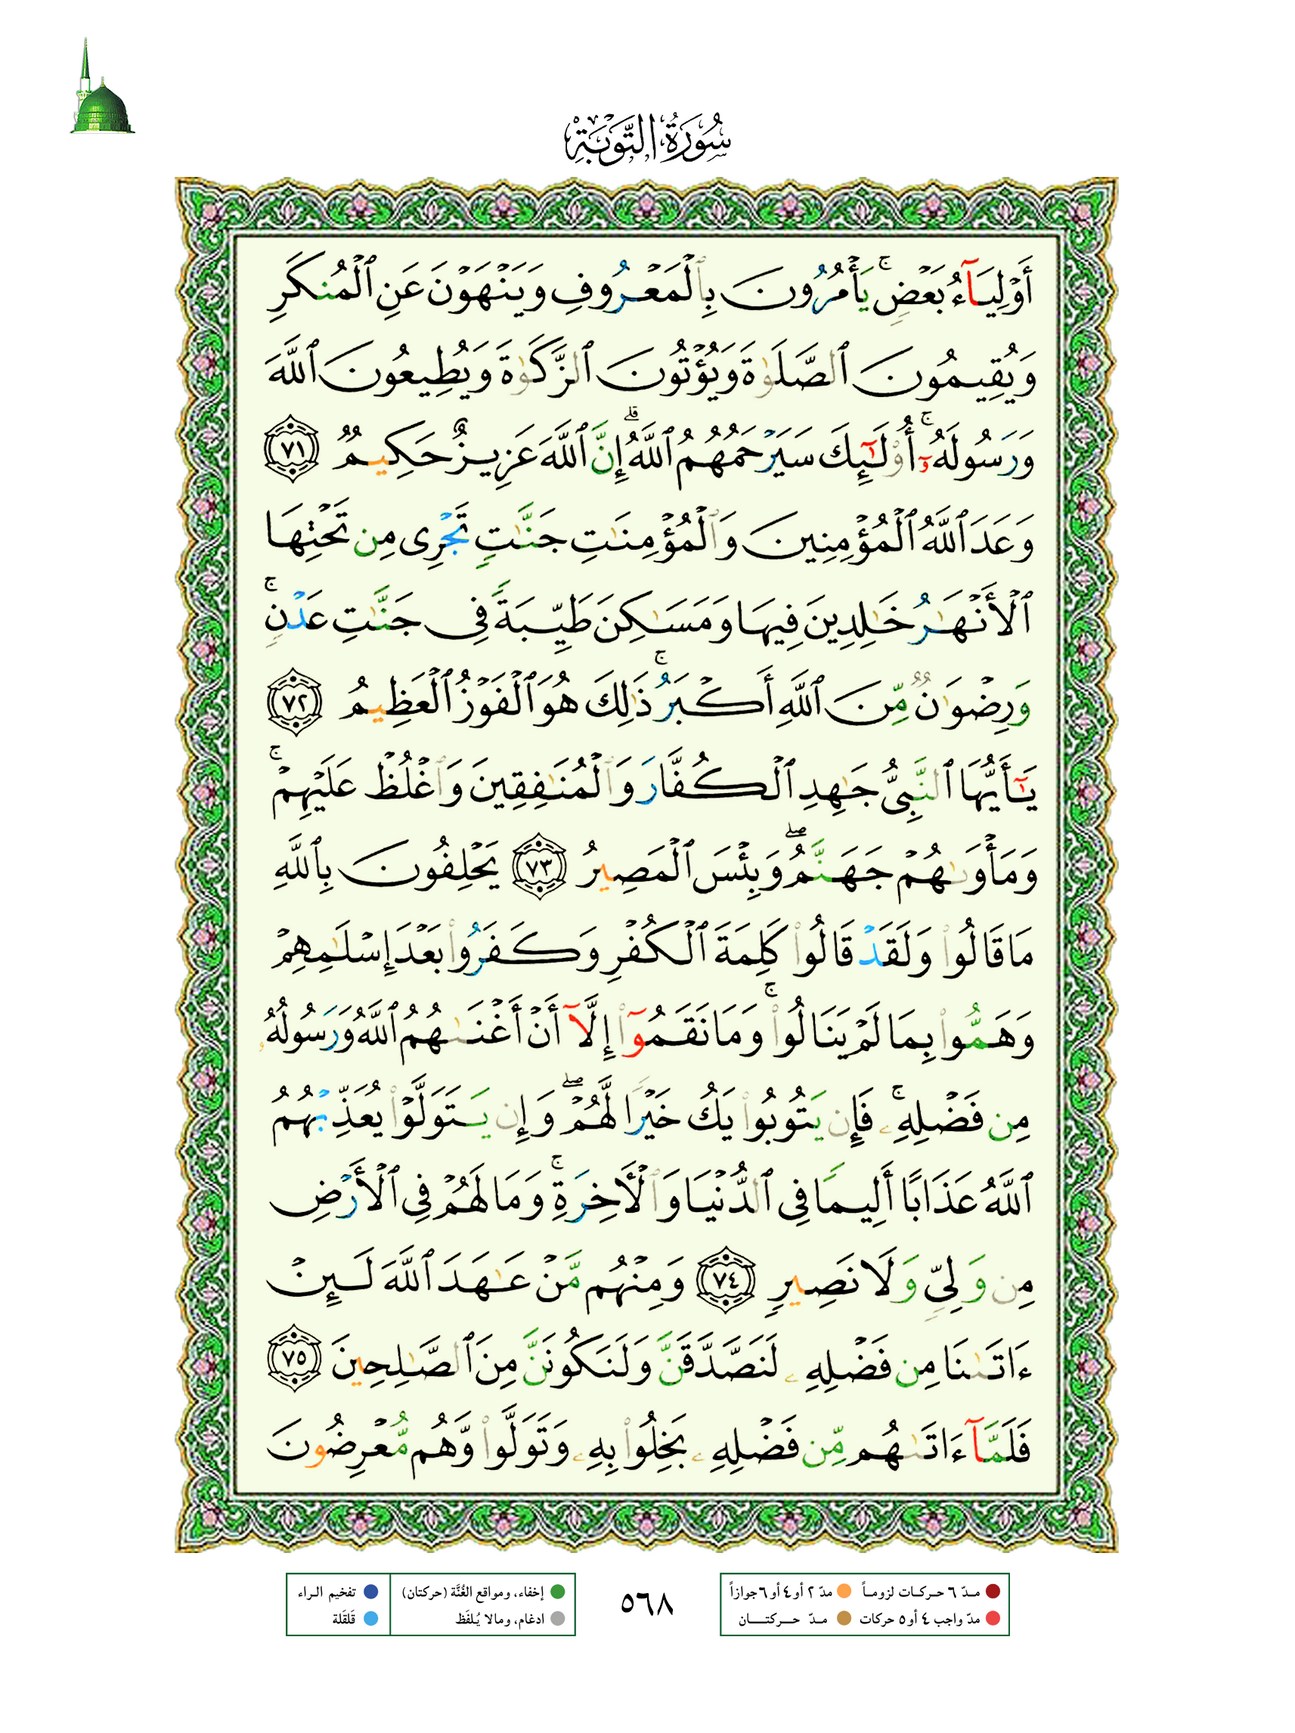 سُورَةُ التَّوْبَةِ
أَوْلِيَآءُ بَعْضٍ ۚ يَأْمُرُونَ بِٱلْمَعْرُوفِ وَيَنْهَوْنَ عَنِ ٱلْمُنكَرِ
وَيُقِيمُونَ ٱلصَّلَوٰةَ وَيُؤْتُونَ ٱلزَّكَوٰةَ وَيُطِيعُونَ ٱللَّهَ
وَرَسُولَهُۥٓ ۚ أُو۟لَـٰٓئِكَ سَيَرْحَمُهُمُ ٱللَّهُ ۗ إِنَّ ٱللَّهَ عَزِيزٌ حَكِيمٌ ٧١
وَعَدَ ٱللَّهُ ٱلْمُؤْمِنِينَ وَٱلْمُؤْمِنَـٰتِ جَنَّـٰتٍ تَجْرِى مِن تَحْتِهَا
ٱلْأَنْهَـٰرُ خَـٰلِدِينَ فِيهَا وَمَسَـٰكِنَ طَيِّبَةً فِى جَنَّـٰتِ عَدْنٍ ۚ
وَرِضْوَٰنٌ مِّنَ ٱللَّهِ أَكْبَرُ ۚ ذَٰلِكَ هُوَ ٱلْفَوْزُ ٱلْعَظِيمُ ٧٢
يَـٰٓأَيُّهَا ٱلنَّبِىُّ جَـٰهِدِ ٱلْكُفَّارَ وَٱلْمُنَـٰفِقِينَ وَٱغْلُظْ عَلَيْهِمْ ۚ
وَمَأْوَىٰهُمْ جَهَنَّمُ ۖ وَبِئْسَ ٱلْمَصِيرُ ٧٣ يَحْلِفُونَ بِٱللَّهِ
مَا قَالُوا۟ وَلَقَدْ قَالُوا۟ كَلِمَةَ ٱلْكُفْرِ وَكَفَرُوا۟ بَعْدَ إِسْلَـٰمِهِمْ
وَهَمُّوا۟ بِمَا لَمْ يَنَالُوا۟ ۚ وَمَا نَقَمُوٓا۟ إِلَّآ أَنْ أَغْنَىٰهُمُ ٱللَّهُ وَرَسُولُهُۥ
مِن فَضْلِهِۦ ۚ فَإِن يَتُوبُوا۟ يَكُ خَيْرًا لَّهُمْ ۖ وَإِن يَتَوَلَّوْا۟ يُعَذِّبْهُمُ
ٱللَّهُ عَذَابًا أَلِيمًا فِى ٱلدُّنْيَا وَٱلْأَخِرَةِ ۚ وَمَا لَهُمْ فِى ٱلْأَرْضِ
مِن وَلِىٍّ وَلَا نَصِيرٍ ٧٤ وَمِنْهُم مَّنْ عَـٰهَدَ ٱللَّهَ لَئِنْ
ءَاتَىٰنَا مِن فَضْلِهِۦ لَنَصَّدَّقَنَّ وَلَنَكُونَنَّ مِنَ ٱلصَّـٰلِحِينَ ٧٥
فَلَمَّآ ءَاتَىٰهُم مِّن فَضْلِهِۦ بَخِلُوا۟ بِهِۦ وَتَوَلَّوا۟ وَّهُم مُّعْرِضُونَ
مـدّ ٦ حركـات لزومـاً مدّ ٢ أو ٤ أو ٦ جوازاً
مدّ واجب ٤ أو ٥ حركات مـدّ حـــركتـــان
٥٦٨
إخفاء، ومواقع الغُنَّة (حركتان) تفخيم الـراء
ادغام، ومالا يُـلفَظ قَلقَلة